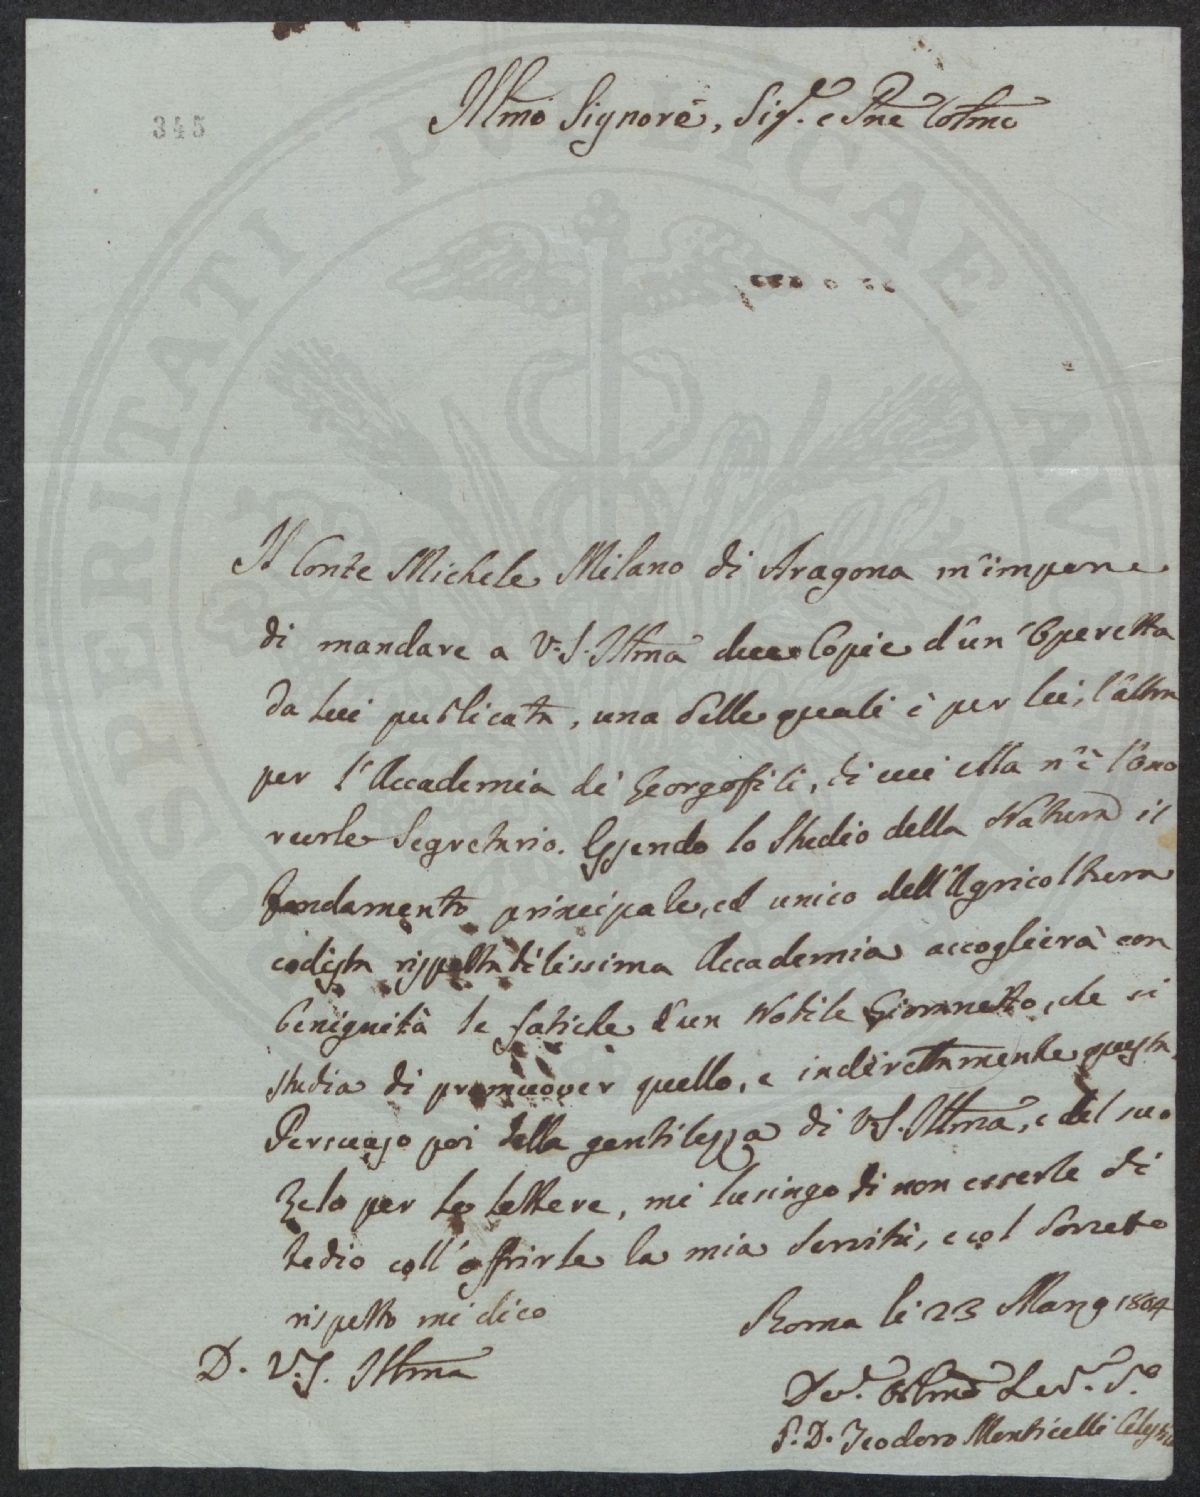 345
Illmo Signore, Sig.r e Pne Colmo
Il Conte Michele Milano di Aragona m'impone
di mandare a V.S. Illma due Copie d'un'Operetta
da lui publicata, una delle quali è per lei, l'altra
per l'Accademia de' Georgofili, di cui ella n'è l'ono
revole Segretario. Essendo lo studio della Natura il
fondamento principale, ed unico dell'Agricoltura
codesta rispettabilissima Accademia accoglierà con
benignità le fatiche d'un Nobile Giovinetto, che si
studia di promuover quello, e indirettamente questa.
Persuaso poi della gentilezza di V.S. Illma, e del suo
zelo per le lettere, mi lusingo di non esserle di
tedio coll'offrirle la mia servitù, e col dovuto
rispetto mi dico
Roma li 23 Marzo 1804
D. V.S. Illma
Dev.o Obbmo Ser.e
P. D. Teodoro Monticelli Celestino
PROSPERITATI PUBLICAE AUGENDAE